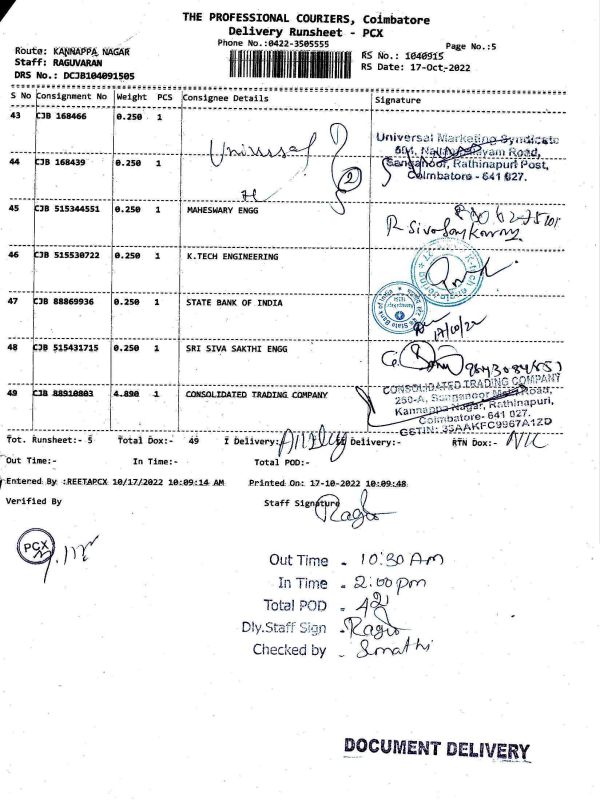 THE PROFESSIONAL COURIERS, Coimbatore
Delivery Runsheet - PCX
Phone No.:0422-3505555
Page No.:5
Route: KANNAPPA NAGAR
Staff: RAGUVARAN
DRS No.: DCJB104091505
RS No.: 1040915
RS Date: 17-Oct-2022
S No Consignment No Weight PCS Consignee Details Signature
43 CJB 168466 0.250 1
Universal
2
Universal Marketing Syndicate
Road,
Sanganoor, Rathinapuri Post,
Coimbatore - 641 027.
44 CJB 168439 0.250 1
45 CJB 515344551 0.250 1 MAHESWARY ENGG
46 CJB 515530722 0.250 1 K.TECH ENGINEERING
47 CJB 88869936 0.250 1 STATE BANK OF INDIA
State Bank of India
17/10/22
48 CJB 515431715 0.250 1 SRI SIVA SAKTHI ENGG
49 CJB 88910803 4.890 1 CONSOLIDATED TRADING COMPANY
CONSOLIDATED TRADING COMPANY
250-A, Sanganoor Main Road,
Kannappa Nagar, Rathinapuri,
Coimbatore- 641 027.
GSTIN: 33AAKFC9967A1ZD
Tot. Runsheet:- 5 Total Dox:- 49 I Delivery: II Delivery:- RTN Dox:- NIL
Out Time:- In Time:- Total POD:-
Entered By :REETAPCX 10/17/2022 10:09:14 AM Printed On: 17-10-2022 10:09:48
Verified By Staff Signature
Ragu
PCX
Out Time - 10:30 Am
In Time - 2:00 pm
Total POD - 42
Dly.Staff Sign - Ragu
Checked by - Sumathi
DOCUMENT DELIVERY